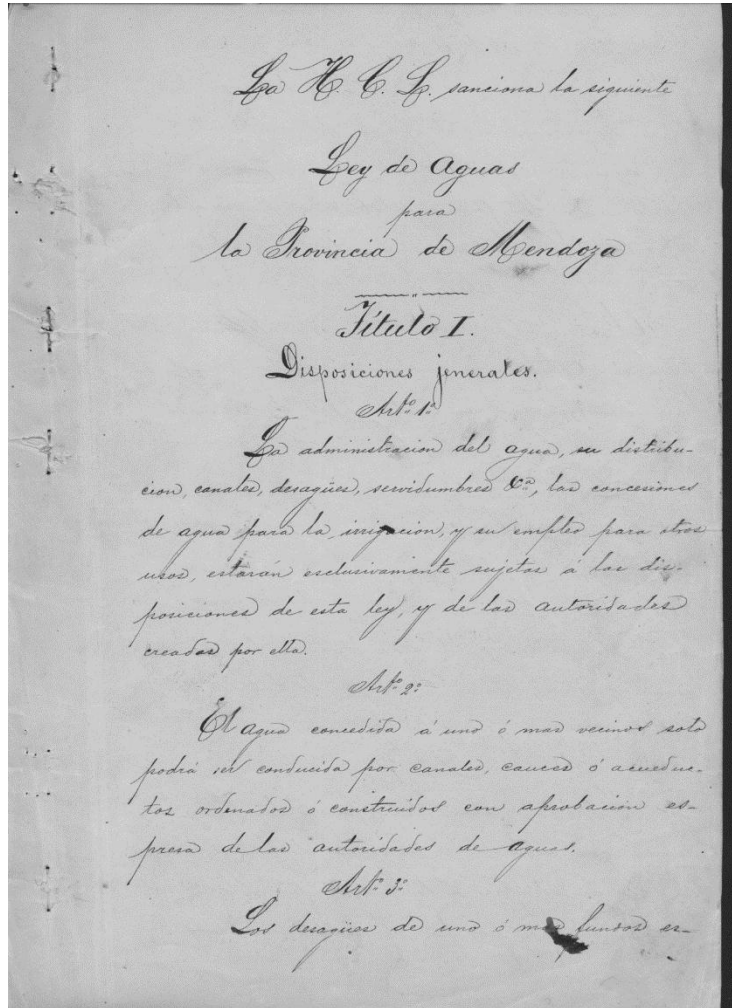 La H. C. L. sanciona la siguiente
Ley de Aguas
para
la Provincia de Mendoza
Título I.
Disposiciones jenerales.
Artº 1º
La administracion del agua, su distribu-
cion, canales, desagües, servidumbres &ª, las concesiones
de agua para la irrigacion, y su empleo para otros
usos, estarán esclusivamente sujetas á las dis-
posiciones de esta ley, y de las autoridades
creadas por ella.
Artº 2º
El agua concedida á uno ó mas vecinos solo
podrá ser conducida por canales, cauces ó acueduc-
tos ordenados ó construidos con aprobacion es-
presa de las autoridades de aguas.
Artº 3º
Los desagües de uno ó mas fundos es-